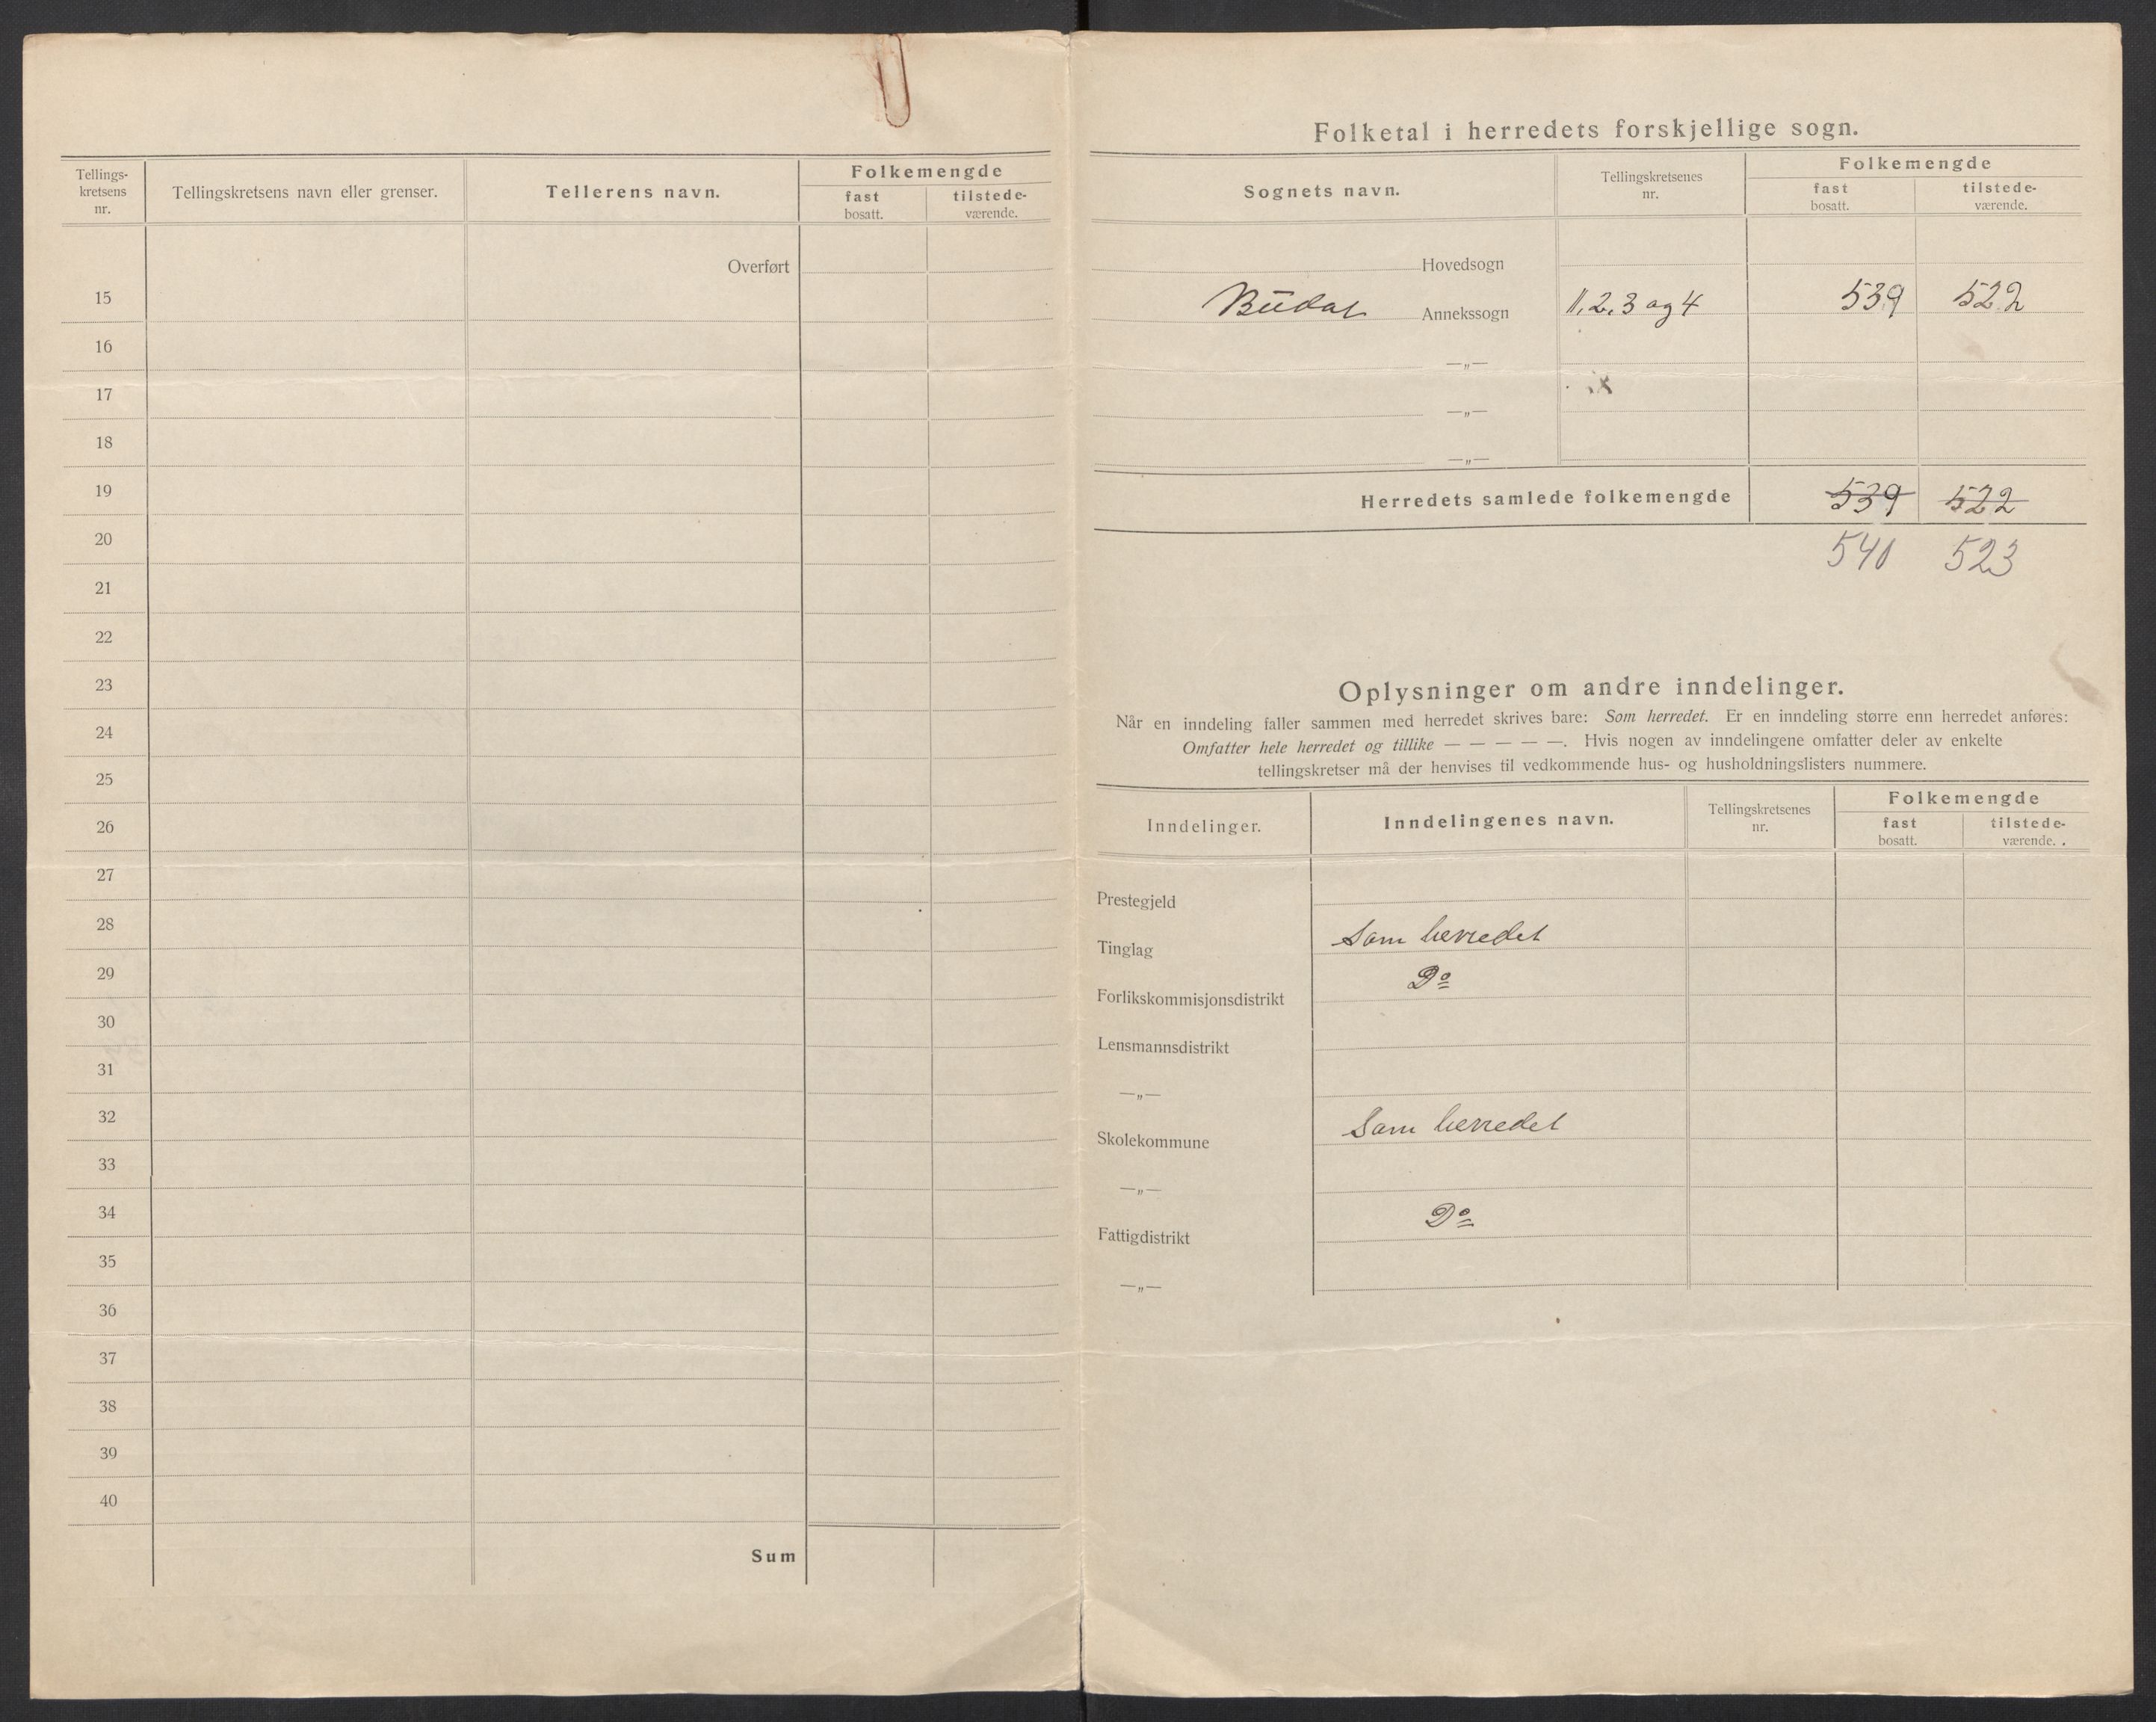 Tellings-kretsens nr. Tellingskretsens navn eller grenser. Tellerens navn. Folkemengde
fast bosatt. tilstede-værende.
Overført
15
16
17
18
19
20
21
22
23
24
25
26
27
28
29
30
31
32
33
34
35
36
37
38
39
40
Sum
Folketal i herredets forskjellige sogn.
Sognets navn. Tellingskretsenes nr. Folkemengde
fast bosatt. tilstede-værende.
Hovedsogn
Budal Annekssogn 1, 2, 3 og 4 539 522
—„—
—„—
—„—
Herredets samlede folkemengde 539 522
540 523
Oplysninger om andre inndelinger.
Når en inndeling faller sammen med herredet skrives bare: Som herredet. Er en inndeling større enn herredet anføres:
Omfatter hele herredet og tillike — — — — —. Hvis nogen av inndelingene omfatter deler av enkelte
tellingskretser må der henvises til vedkommende hus- og husholdningslisters nummere.
Inndelinger. Inndelingenes navn. Tellingskretsenes nr. Folkemengde
fast bosatt. tilstede-værende.
Prestegjeld
Tinglag Som herredet
Forlikskommisjonsdistrikt Do
Lensmannsdistrikt
—„—
Skolekommune Som herredet
—„—
Fattigdistrikt Do
—„—